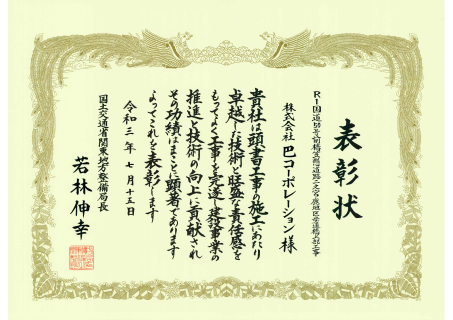 表彰状
株式会社 巴コーポレーション 様
貴社は頭書工事の施工にあたり
卓越した技術と旺盛な責任感を
もってよく工事を完遂し建設事業の
推進と技術の向上に貢献され
その功績はまことに顕著であります
よってこれを表彰します
令和三年七月十五日
国土交通省関東地方整備局長
若林伸幸